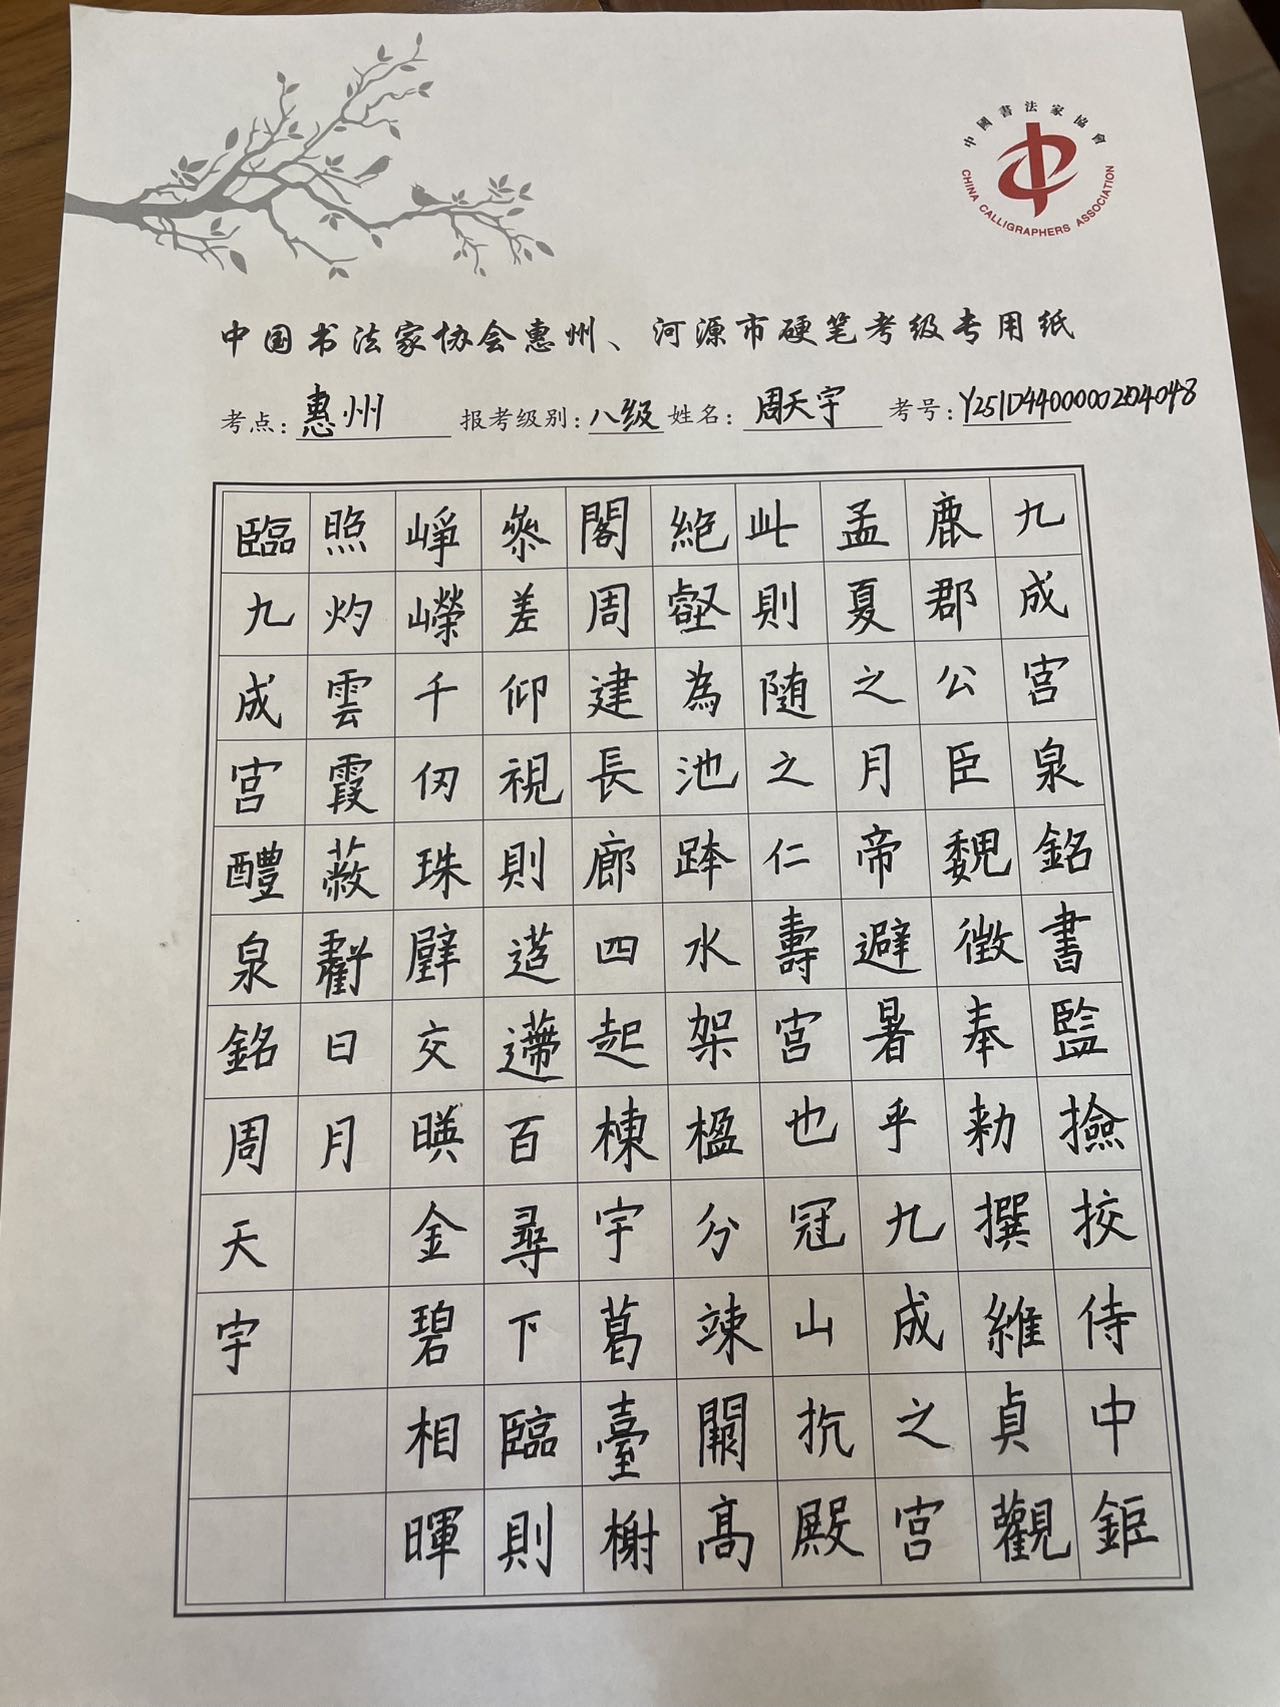 中國書法家協會
CHINA CALLIGRAPHERS ASSOCIATION
中国书法家协会惠州、河源市硬笔考级专用纸
考点：惠州 报考级别：八级 姓名：周天宇 考号：Y251D4400000204048
九成宫泉銘書監撿挍侍中鉅
鹿郡公臣魏徵奉勑撰維貞觀
孟夏之月帝避暑乎九成之宫
此則随之仁壽宫也冠山抗殿
絶壑為池跨水架楹分竦闕高
閣周建長廊四起棟宇葛臺榭
參差仰視則迢遰百尋下臨則
崢嶸千仞珠璧交暎金碧相暉
照灼雲霞蔽虧日月
臨九成宫醴泉銘周天宇